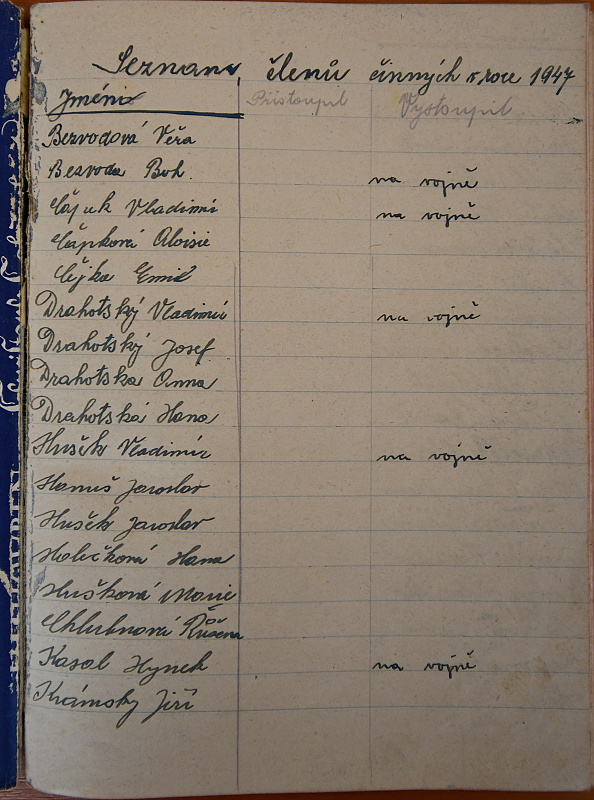 Seznam členů činných v roce 1947
Jméni Přistoupil Vystoupil
Bezvodová Věra
Bezvoda Boh. na vojně
Čápek Vladimír na vojně
Čápková Aloisie
Čejka Emil
Drahotský Vladimír na vojně
Drahotský Josef
Drahotská Anna
Drahotská Hana
Hušek Vladimír na vojně
Hanuš Jaroslav
Hušek Jaroslav
Holečková Hana
Hušková Marie
Chlubnová Růžena
Kasal Hynek na vojně
Krámský Jiří